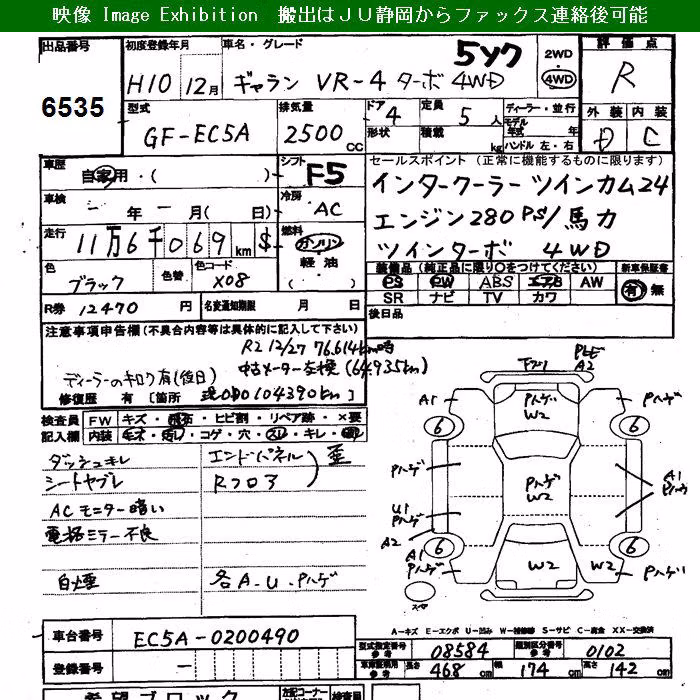 映像 Image Exhibition 搬出はJU静岡からファックス連絡後可能
出品番号 初度登録年月 車名・グレード 5ツク 2WD 評価点
6535 H10 12月 ギャラン VR-4 ターボ 4WD 4WD R
型式 排気量 ドア 4 定員 5 人 ディーラー・並行 外装 内装
GF-EC5A 2500 CC 形状 積載 kg モデル年式 年 ハンドル 左・右 D C
車歴 自家用・( ) シフト F5 セールスポイント (正常に機能するものに限ります)
車検 年 月( 日) 冷房 AC インタークーラー ツインカム24
走行 11万6千069 km $ 燃料 ガソリン エンジン280PS/馬力
軽油 ( ) ツインターボ 4WD
色 ブラック 色替 色コード X08 装備品 (純正品に限り○をつけてください) 新車保証書
PS PW ABS エアB AW 有・無
R券 12470 円 名変通知期限 月 日 SR ナビ TV カワ
注意事項申告欄 (不具合内容等は具体的に記入して下さい) 後日品
R2 12/27 76.614km時
中古メーター交換 (64.935km)
ディーラーのキロク有(後日)
修復歴 有 [箇所 現ODO104390km]
検査員 FW キズ・飛石・ヒビ割・リペア跡・×要
記入欄 内装 コゲ・穴・スレ・キレ
ダッシュキレ エンドパネル 歪
シートヤブレ Rフロア
ACモニター暗い
電格ミラー不良
白煙 各A・U・Pハゲ
A1 Pハゲ W2 Pハゲ
A2
6 6
Pハゲ Pハゲ W2 A1
U1
Pハゲ
A2
A1 6 6
Pハゲ W2 W2 Pハゲ
スペア
A-キズ E-エクボ U-凹み W-補修跡 S-サビ C-腐食 XX-交換済
車台番号 EC5A-0200490 型式指定番号 参考 08584 類別区分番号 参考 0102
登録番号 - 車庫証明用 参考 長さ 468 cm 幅 174 cm 高さ 142 cm
希望ブロック 左記コーナー 検査員